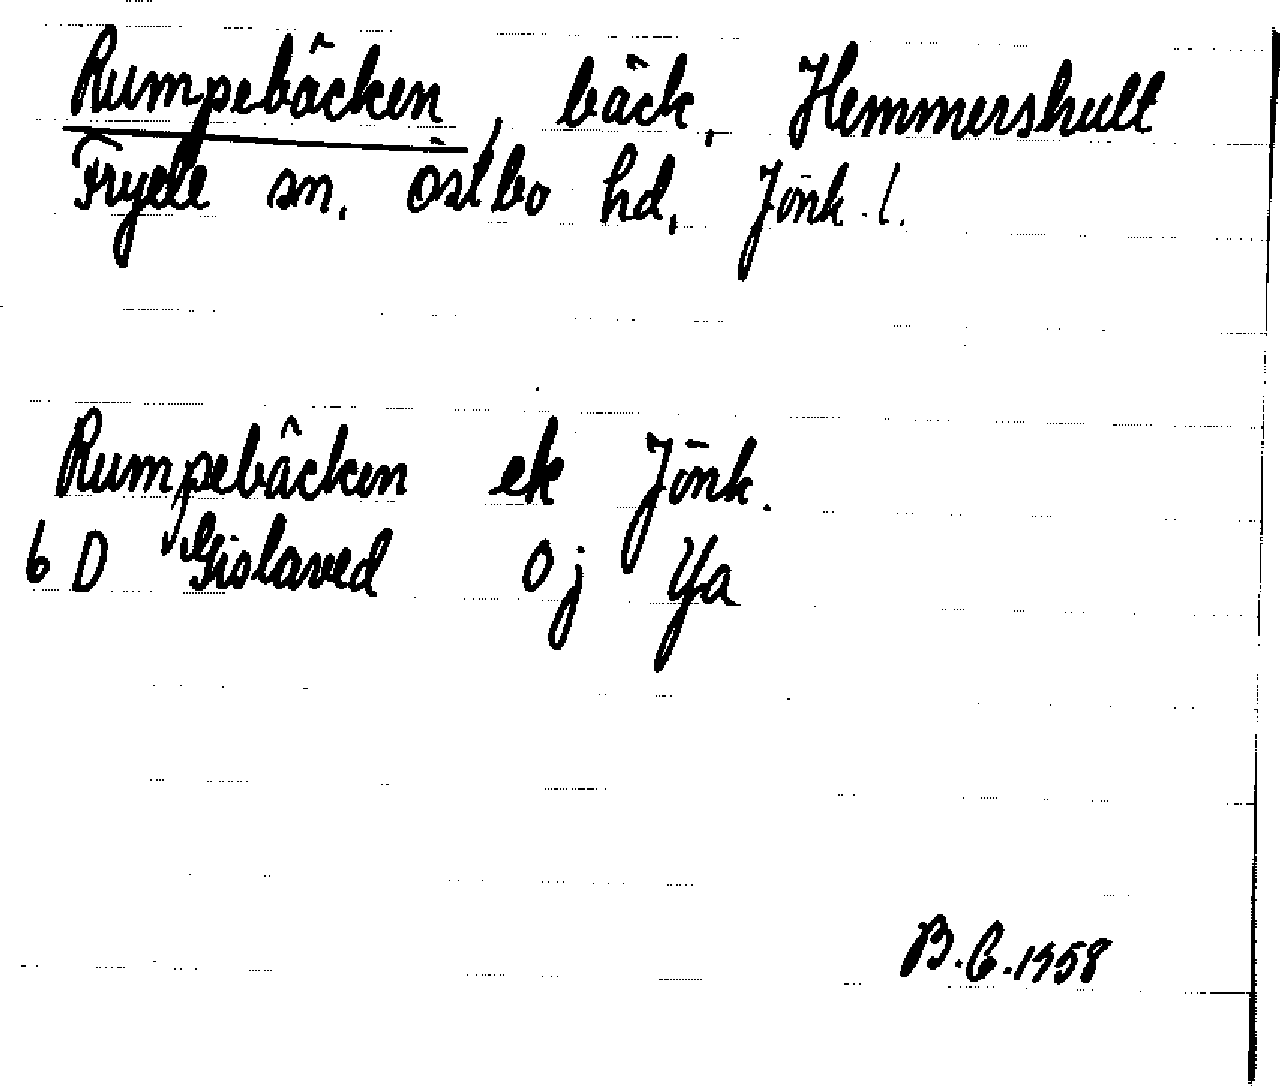 Rumpebäcken, bäck, Hemmershult
Fryele sn. Östbo hd, Jönk. l.
Rumpebäcken ek Jönk.
6 D Gislaved 0 j Ya
B.G. 1958